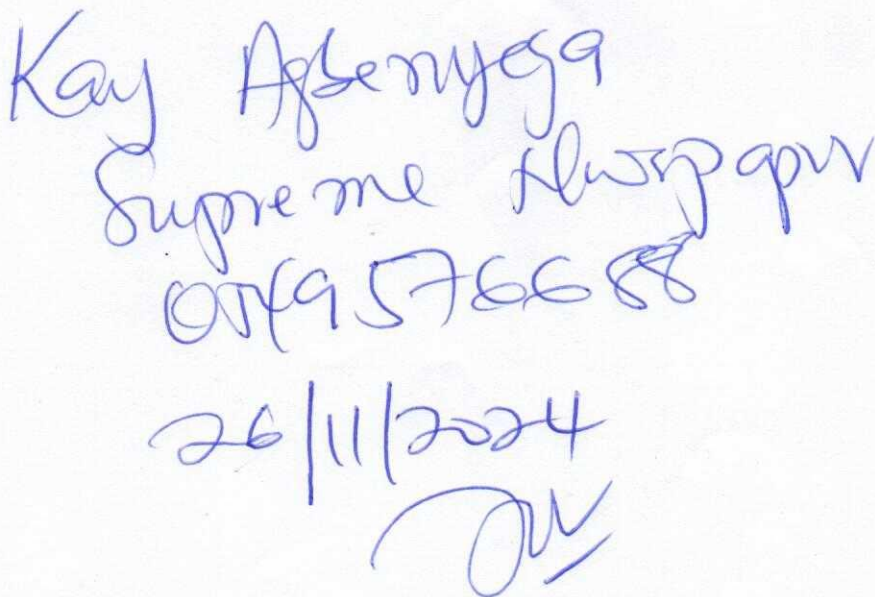 Kay Agbenyega
Supreme Newspaper
0549576688
26/11/2024